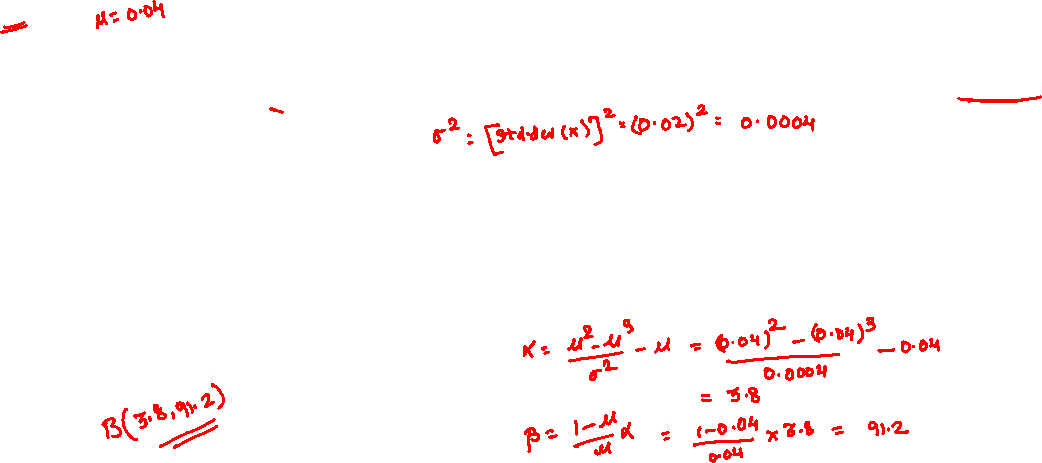 μ = 0.04
σ² = [std.dev (x)]² = (0.02)² = 0.0004
α = (μ² - μ³)/σ² - μ = ((0.04)² - (0.04)³)/0.0004 - 0.04
= 3.8
β = (1-μ)/μ α = (1-0.04)/0.04 × 3.8 = 91.2
B(3.8, 91.2)